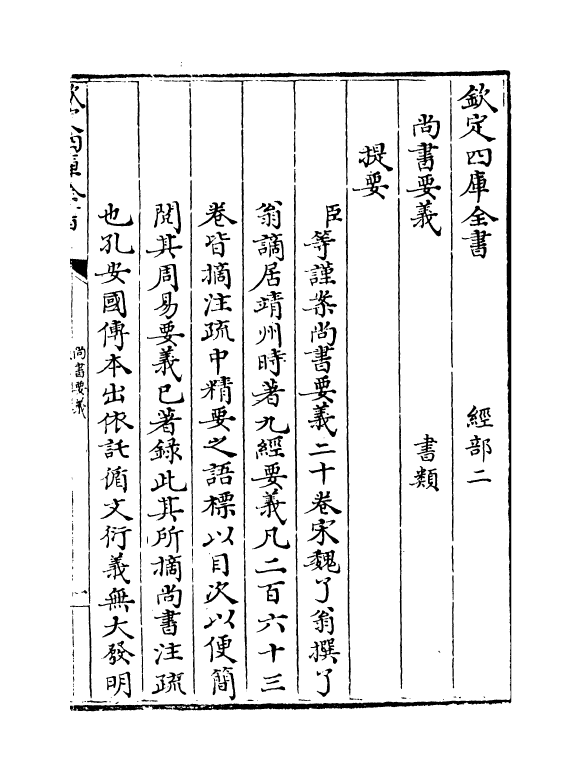 欽定四庫全書　經部二
尚書要義　書類
提要
臣等謹案尚書要義二十卷宋魏了翁撰了
翁謫居靖州時著九經要義凡二百六十三
卷皆摘注疏中精要之語標以目次以便簡
閱其周易要義已著錄此其所摘尚書注疏
也孔安國傳本出依託循文衍義無大發明
欽定四庫全書
尚書要義
一